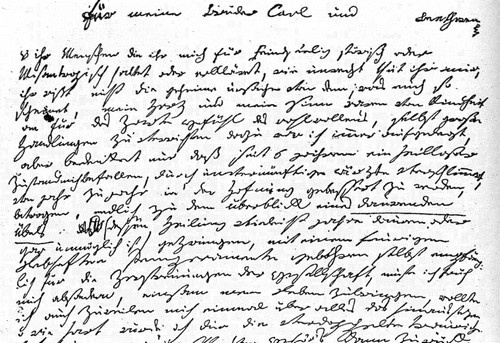 Für meine Brüder Carl und Beethoven
O ihr Menschen die ihr mich für Feindseelig störisch oder
Misantropisch haltet oder erkläret, wie unrecht thut ihr mir,
ihr wißt nicht die geheime urßache von dem, was euch so
scheinet, mein Herz und mein Sinn waren von Kindheit
an für das Zarte gefühl des wohlwollens, selbst große
Handlungen zu verrichten dazu war ich immer aufgelegt,
aber bedenket nur daß seit 6 jahren ein heilloser
Zustand mich befallen, durch unvernünftige ärzte verschlimmert,
von jahr zu jahr in der Hofnung gebessert zu werden,
betrogen, endlich zu dem überblick eines daurenden
Übels dessen Heilung vieleicht jahre dauren oder
gar unmöglich ist gezwungen, mit einem feurigen
Lebhaften Temperamente gebohren selbst empfäng
lich für die Zerstreuungen der Gesellschaft, muste ich früh
mich absondern, einsam mein Leben zubringen, wollte
ich auch zuweilen mich einmal über alles das hinaussezen,
o wie hart wurde ich dur die verdoppelte traurige